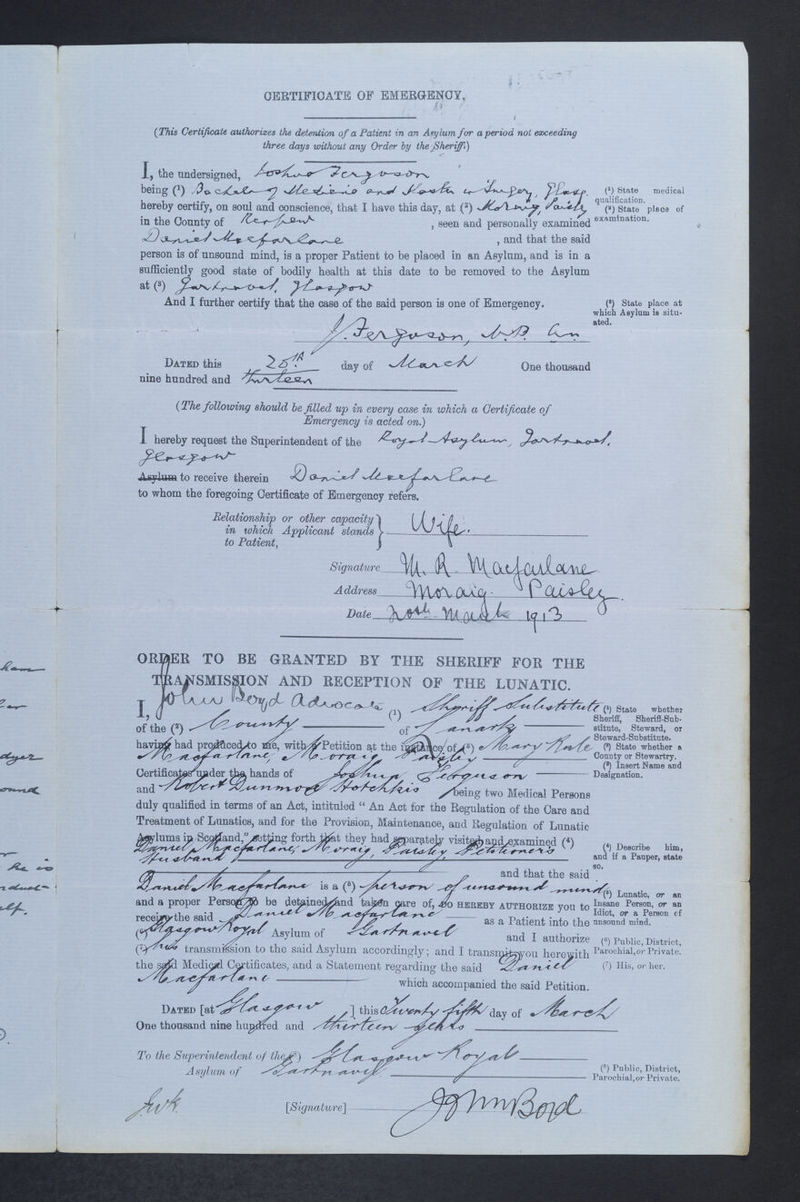 CERTIFICATE OF EMERGENCY.
(This Certificate authorizes the detention of a Patient in an Asylum for a period not exceeding
three days without any Order by the Sheriff.)
I, the undersigned, Joshua Ferguson
being (¹) Bachelor of Medicine and Master in Surgery, Glasg.
(¹) State medical
qualification.
hereby certify, on soul and conscience, that I have this day, at (²) Moraig, Paisley
(²) State place of
examination.
in the County of Renfrew , seen and personally examined
Daniel Macfarlane , and that the said
person is of unsound mind, is a proper Patient to be placed in an Asylum, and is in a
sufficiently good state of bodily health at this date to be removed to the Asylum
at (³) Gartnavel, Glasgow
And I further certify that the case of the said person is one of Emergency.
(³) State place at
which Asylum is situ-
ated.
J. Ferguson, M.B. C.M.
DATED this 20th day of March One thousand
nine hundred and thirteen
(The following should be filled up in every case in which a Certificate of
Emergency is acted on.)
I hereby request the Superintendent of the Royal Asylum, Gartnavel,
Glasgow
Asylum to receive therein Daniel Macfarlane
to whom the foregoing Certificate of Emergency refers.
Relationship or other capacity
in which Applicant stands
to Patient,
Wife.
Signature M. R. Macfarlane
Address Moraig. Paisley.
Date 20th March 1913
ORDER TO BE GRANTED BY THE SHERIFF FOR THE
TRANSMISSION AND RECEPTION OF THE LUNATIC.
I, John Boyd Advocate (¹) Sheriff Substitute
(¹) State whether
Sheriff, Sheriff-Sub-
stitute, Steward, or
Steward-Substitute.
of the (²) County of Lanark
(²) State whether a
County or Stewartry.
having had produced to me, with a Petition at the instance of (³) Mary
Macfarlane, Moraig, Paisley
(³) Insert Name and
Designation.
Certificates under the hands of Joshua Ferguson
and Robert Hotchkis being two Medical Persons
duly qualified in terms of an Act, intituled “ An Act for the Regulation of the Care and
Treatment of Lunatics, and for the Provision, Maintenance, and Regulation of Lunatic
Asylums in Scotland,” setting forth that they had separately visited and examined (⁴)
Daniel Macfarlane, Moraig, Paisley Petitioner's
Husband
(⁴) Describe him,
and if a Pauper, state
so.
and that the said
Daniel Macfarlane is a (⁵) person of unsound mind
(⁵) Lunatic, or an
Insane Person, or an
Idiot, or a Person of
unsound mind.
and a proper Person to be detained and taken care of, DO HEREBY AUTHORIZE you to
receive the said Daniel Macfarlane as a Patient into the
(⁶) Glasgow Royal Asylum of Gartnavel and I authorize
(⁶) Public, District,
Parochial, or Private.
(⁷) his transmission to the said Asylum accordingly; and I transmit you herewith
(⁷) His, or her.
the said Medical Certificates, and a Statement regarding the said Daniel
Macfarlane which accompanied the said Petition.
DATED [at Glasgow ] this Twenty fifth day of March
One thousand nine hundred and thirteen years
To the Superintendent of the (⁸) Glasgow Royal
Asylum of Gartnavel
(⁸) Public, District,
Parochial, or Private.
[Signature] John Boyd